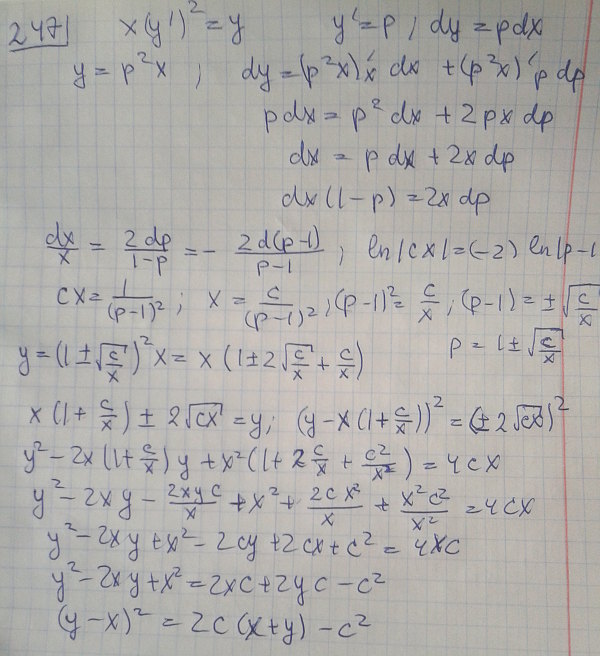 247| x(y')² = y y' = p ; dy = p dx
y = p²x ; dy = (p²x)'ₓ dx + (p²x)'ₚ dp
p dx = p² dx + 2px dp
dx = p dx + 2x dp
dx (1-p) = 2x dp
dx/x = 2dp/(1-p) = - 2d(p-1)/(p-1) ; ln|cx| = (-2) ln|p-1
cx = 1/(p-1)² ; x = c/(p-1)² ; (p-1)² = c/x ; (p-1) = ±√(c/x)
y = (1±√(c/x))² x = x (1±2√(c/x) + c/x) p = 1±√(c/x)
x(1+c/x) ± 2√(cx) = y ; (y-x(1+c/x))² = (±2√(cx))²
y² - 2x(1+c/x)y + x²(1+2c/x + c²/x²) = 4cx
y² - 2xy - 2xyc/x + x² + 2cx²/x + x²c²/x² = 4cx
y² - 2xy + x² - 2cy + 2cx + c² = 4xc
y² - 2xy + x² = 2xc + 2yc - c²
(y-x)² = 2c(x+y) - c²